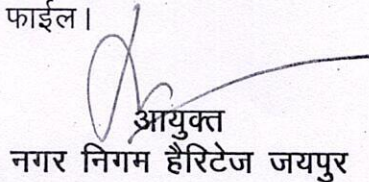 फाईल।
आयुक्त
नगर निगम हैरिटेज जयपुर